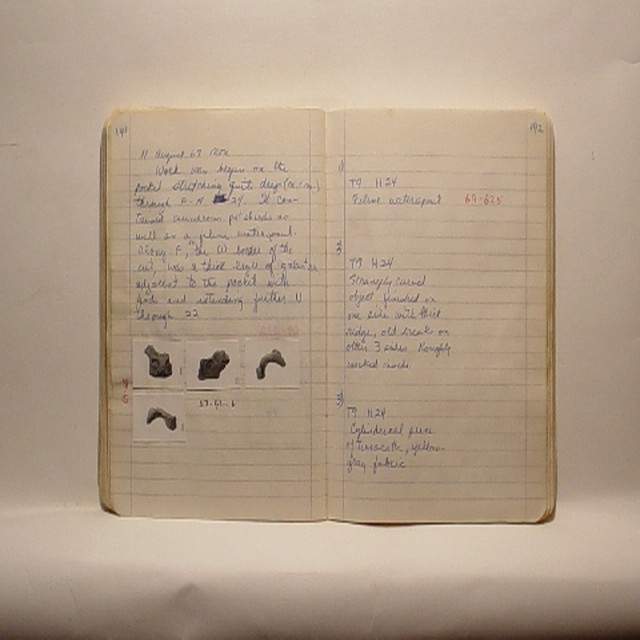 141
11 August 69
Work was begun on the
pocket stretching quite deep
through F-N 24. It con-
tained numerous potsherds as
well as a feline waterspout.
Along F, the W border of the
cut, was a thick layer of
adjacent to the pocket with
and extending further N
through 22
142
1)
T9 H24
Feline waterspout 69-625
2)
T9 H24
Strangely curved
object finished on
one side with thick
ridge, old break on
other 3 sides. Roughly
worked inside
3)
T9 H24
Cylindrical piece
of terracotta, yellow-
gray fabric